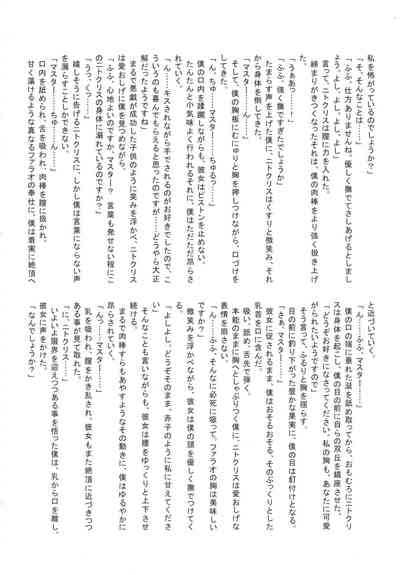 私を怖がっているのでしょうか?」
「そ、そんなことは……」
「ふふ、仕方ありませんね。優しく撫でてさしあげるとしましょう。よし、よし、よし」
言って、ニトクリスは膣に力を入れた。
締まりがきつくなったそれは、僕の肉棒をより強く抜き上げた。
「うぁあっ……!」
「ふふ、強く撫ですぎたでしょうか」
たまらず声を上げた僕に、ニトクリスはくすりと微笑み、それから身体を倒してきた。
そして、僕の胸板にむにゅりと胸を押しつけながら、口づけをしてきた。
「ん、ちゅ……マスター……ちゅるっ……」
僕の口内を蹂躙しながらも、彼女はピストンを止めない。
たんたんと小気味よく行われるそれに、僕はただただ昂らされていく。
「ん……キスされながら手でされるのがお好きでしたので、こういうのも喜んでもらえると思ったのですが……どうやら大正解だったようですね」
まるで悪戯が成功した子供のように笑みを浮かべ、ニトクリスは愛おしげに僕を見つめながら、
「ふふ、心地よいのですか、マスターっ　言葉も発せない程にこのニトクリスの身体に溺れているのですか?」
「うっ、くっ……」
嬉しそうに告げるニトクリスに、しかし僕は言葉にならない声を漏らすことしかできない。
「マスター……ちゅ……ん……」
口内を舐められ、舌を吸われ、肉棒を膣に抜かれ。
甘く蕩けるような真なるファラオの奉仕に、僕は着実に絶頂へ
と近づいていく。
「ん……ふふ、マスター……」
僕の口の端に垂れた涎を舐め取ってから、おもむろにニトクリスは身体を起こし、僕の目の前に自らの双丘を鎮座させた。
「どうぞお好きになさってください。私の胸も、あなたに可愛がられたいようですので」
そう言って、ふるりと胸を揺らす。
目の前に釣り下がった豊かな果実に、僕の目は釘付けとなる。
「さぁ、マスター……」
彼女に促されるまま、僕はおそるおそる、そのぷっくりとした乳首を口に含んだ。
吸い、舐め、舌先で弾く。
本能のままに胸へとしゃぶりつく僕に、ニトクリスは愛おしげな表情を崩さない。
「ん……ふふ、そんなに必死に吸って、ファラオの胸は美味しいですか?」
微笑みを浮かべながら、彼女は僕の頭を優しく撫でつけてくる。
「よしよし、どうぞそのまま、赤子のように私に甘えてください」
そんなことを言いながらも、彼女は腰をゆっくりと上下させ続ける。
まるで肉棒すらもあやすようなその動きに、僕はゆるやかに昂らされていく。
「んっ……マスター……」
乳を吸われ、膣をかき乱され、彼女もまた絶頂に近づきつつある事が見て取れた。
いよいよ限界を迎えつつある事を悟った僕は、乳から口を離し、彼女に声をかけた。
「に、ニトクリス……」
「なんでしょうか?」